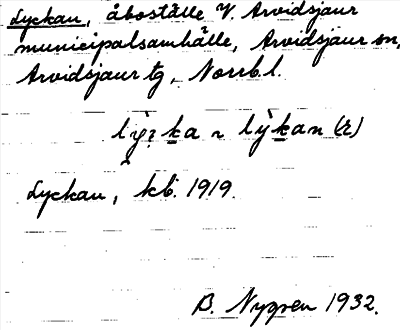 Lyckan, åboställe V. Arvidsjaur
municipalsamhälle, Arvidsjaur sn,
Arvidsjaur tg, Norrb.l.
Lyckan, kb. 1919.
B. Nygren 1932.